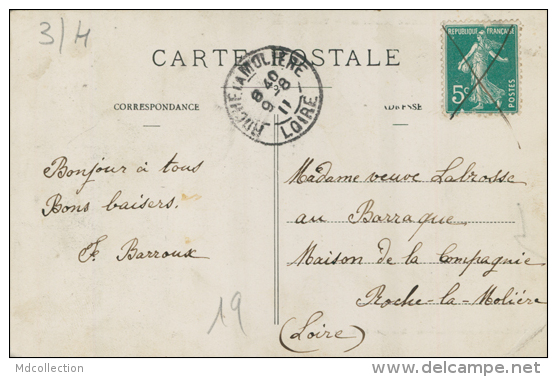 3/4
CARTE POSTALE
REPUBLIQUE FRANÇAISE
5c
POSTES
ROCHE LA MOLIÈRE
8 40
9 -8
11
LOIRE
CORRESPONDANCE
Bonjour à tous
Bons baisers.
F. Barroux
19
Madame veuve Labrosse
au Barraque
Maison de la Compagnie
Roche-la-Molière
(Loire)
Mdcollection
www.delcampe.net